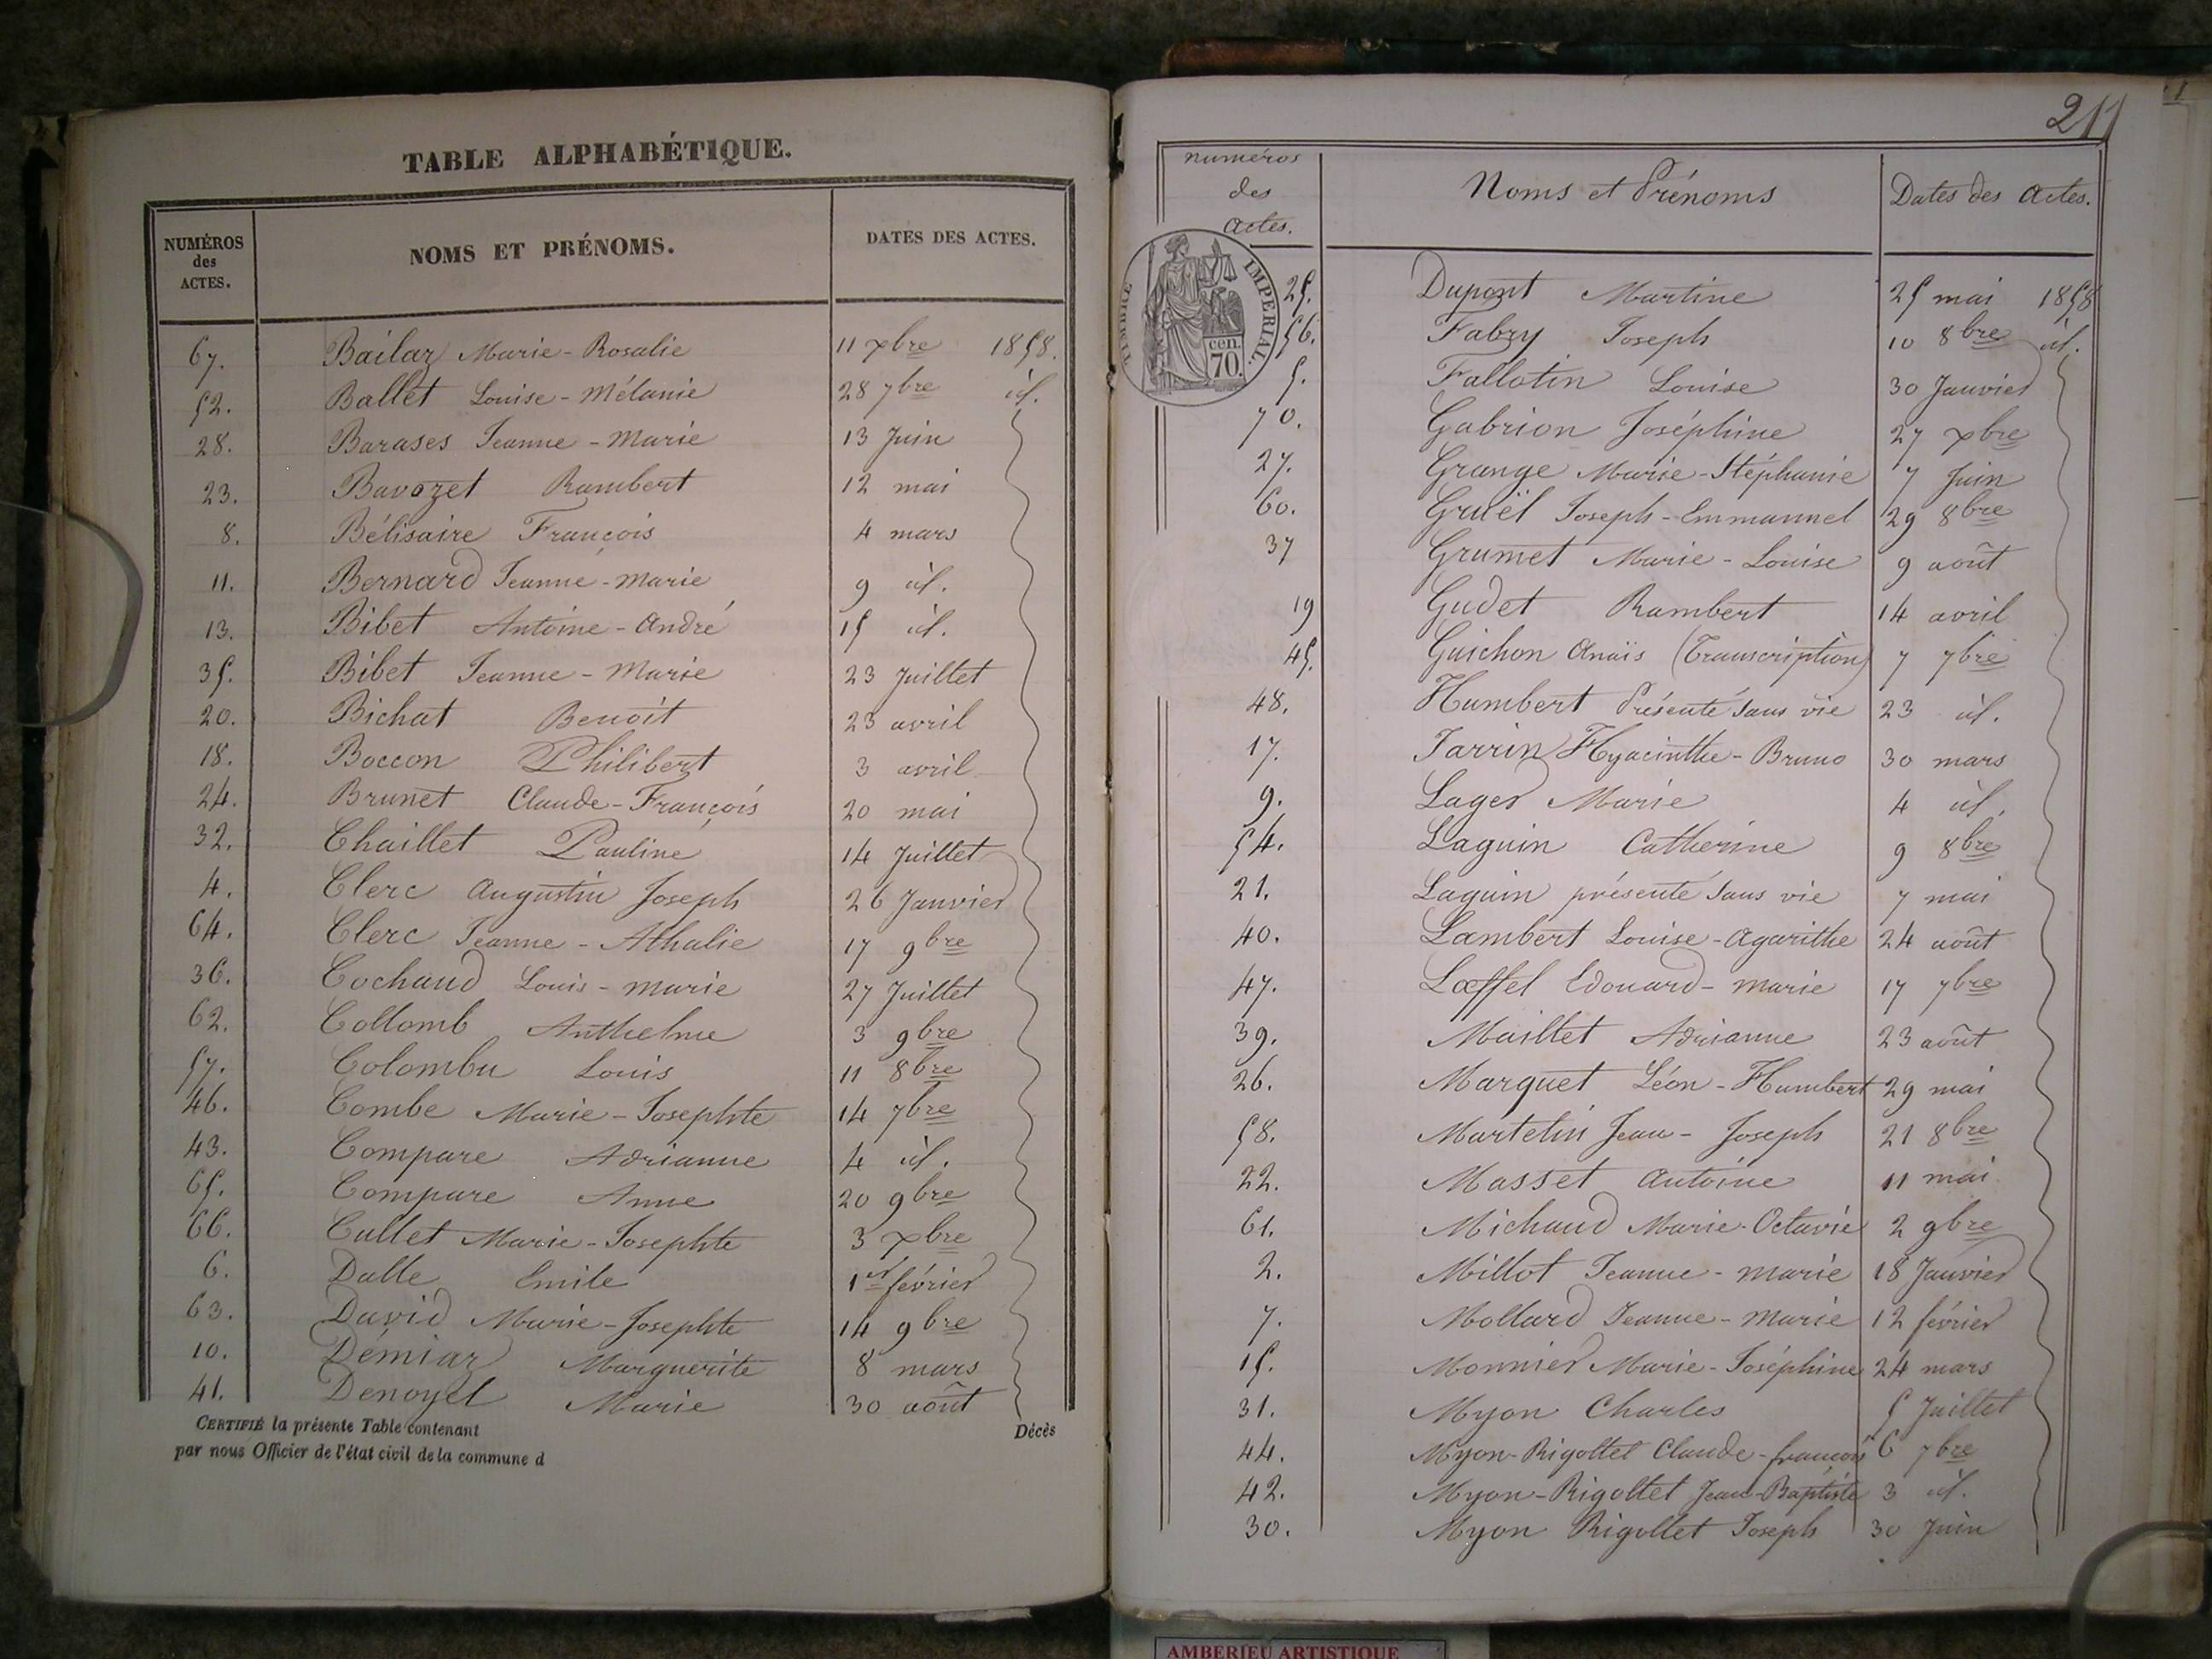 TABLE ALPHABÉTIQUE.
NUMÉROS des ACTES. NOMS ET PRÉNOMS. DATES DES ACTES.
67. Bailaz Marie-Rosalie 11 xbre 1858.
52. Ballet Louise-Mélanie 28 7bre id.
28. Barases Jeanne-Marie 13 Juin
23. Bavozet Rambert 12 mai
8. Bélisaire François 4 mars
11. Bernard Jeanne-Marie 9 id.
13. Bibet Antoine-André 15 id.
35. Bibet Jeanne-Marie 23 Juillet
20. Bichat Benoit 23 avril
18. Boccon Philibert 3 avril
24. Brunet Claude-François 20 mai
32. Chaillet Pauline 14 Juillet
4. Clerc Augustin Joseph 26 Janvier
64. Clerc Jeanne-Athalie 17 9bre
36. Cochaud Louis-Marie 27 Juillet
62. Collomb Anthelme 3 9bre
57. Colombu Louis 11 8bre
46. Combe Marie-Josephte 14 7bre
43. Compare Adrianne 4 id.
65. Compare Anne 20 9bre
66. Cullet Marie-Josephte 3 xbre
6. Dalle Emile 1er février
63. David Marie-Josephte 14 9bre
10. Démiaz Marguerite 8 mars
41. Denoyel Marie 30 août
CERTIFIÉ la présente Table contenant Décès
par nous Officier de l'état civil de la commune d
211
numéros des actes. Noms et Prénoms Dates des actes.
TIMBRE IMPERIAL.
cen. 70.
25. Dupont Martine 25 mai 1858
56. Fabry Joseph 10 8bre id.
5. Fallotin Louise 30 Janvier
70. Gabrion Joséphine 27 xbre
27. Grange Marie-Stéphanie 7 Juin
60. Gruël Joseph-Emmanuel 29 8bre
37 Grumet Marie-Louise 9 août
19 Gudet Rambert 14 avril
45. Guichon Anaïs (Transcription) 7 7bre
48. Humbert Présenté Sans vie 23 id.
17. Jarrin Hyacinthe-Bruno 30 mars
9. Lager Marie 4 id.
54. Laguin Catherine 9 8bre
21. Laguin présenté Sans vie 7 mai
40. Lambert Louise-Agarithe 24 août
47. Lœffel Edouard-Marie 17 7bre
39. Maillet Adrianne 23 août
26. Marquet Léon-Humbert 29 mai
58. Martelin Jean-Joseph 21 8bre
22. Masset Antoine 11 mai
61. Michaud Marie-Octavie 2 9bre
2. Millot Jeanne-Marie 18 Janvier
7. Mollard Jeanne-Marie 12 février
15. Monnier Marie-Joséphine 24 mars
31. Myon Charles 5 Juillet
44. Myon-Rigollet Claude-françois 6 7bre
42. Myon-Rigollet Jean-Baptiste 3 id.
30. Myon Rigollet Joseph 30 Juin
AMBERIEU ARTISTIQUE